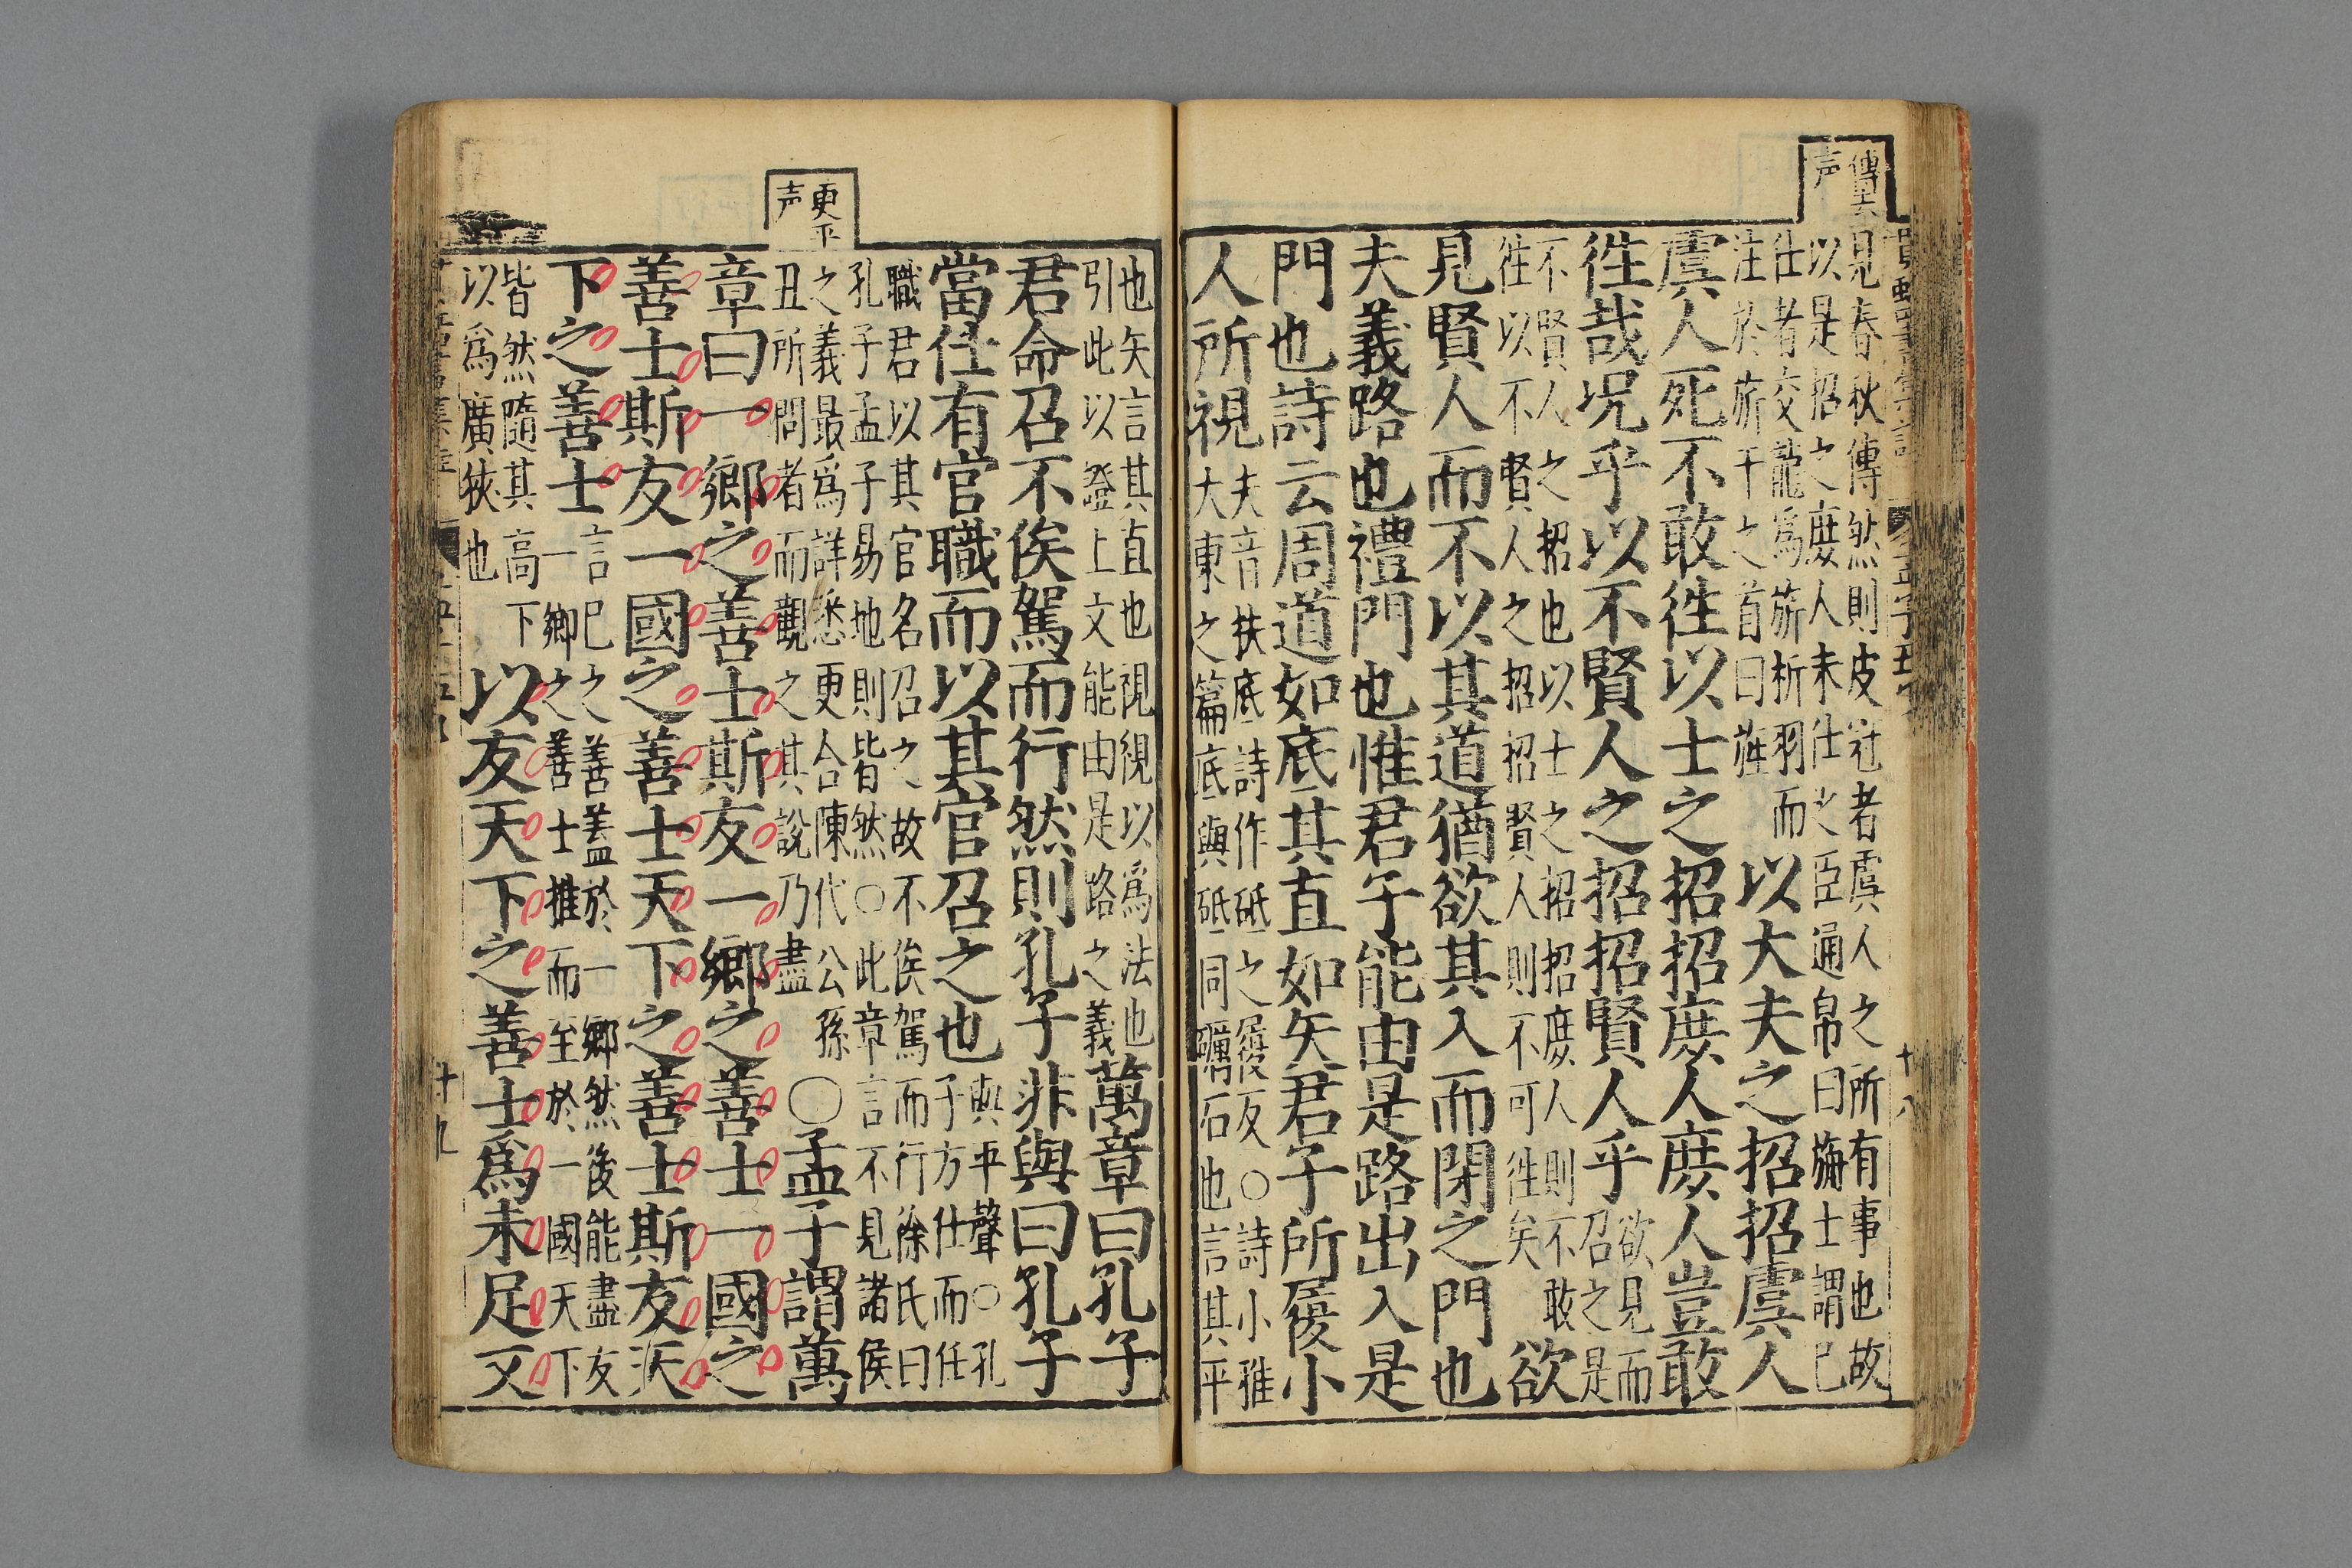 傳去
声
見春秋傳然則皮冠者虞人之所有事也故
以是招之庶人未仕之臣通帛曰旃士謂已
仕者交龍爲旂析羽而
注於旂干之首曰旌
以大夫之招招虞人
虞人死不敢徃以士之招招庶人庶人豈敢
徃哉况乎以不賢人之招招賢人乎
欲見而
召之是
不賢人之招也以士之招招庶人則不敢
徃以不賢人之招招賢人則不可徃矣
欲
見賢人而不以其道猶欲其入而閉之門也
夫義路也禮門也惟君子能由是路出入是
門也詩云周道如底其直如矢君子所履小
人所視
夫音扶底詩作砥之履反○詩小雅
大東之篇底與砥同礪石也言其平
十八
更平
声
也矢言其直也視視以爲法也
引此以證上文能由是路之義
萬章曰孔子
君命召不俟駕而行然則孔子非與曰孔子
當仕有官職而以其官召之也
與平聲○孔
子方仕而任
職君以其官名召之故不俟駕而行徐氏曰
孔子孟子易地則皆然○此章言不見諸侯
之義最爲詳悉更合陳代公孫
丑所問者而觀之其說乃盡
○孟子謂萬
章曰一鄉之善士斯友一鄉之善士一國之
善士斯友一國之善士天下之善士斯友天
下之善士
言已之善蓋於一鄉然後能盡友
一鄉之善士推而至於一國天下
皆然隨其高下
以爲廣狹也
以友天下之善士爲未足又
十九